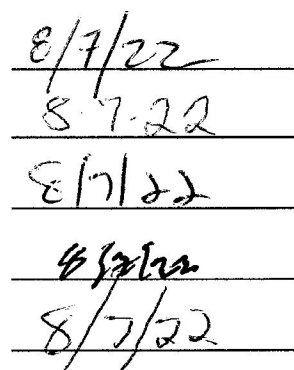 8/7/22
8.7.22
8/7/22
8/7/22
8/7/22